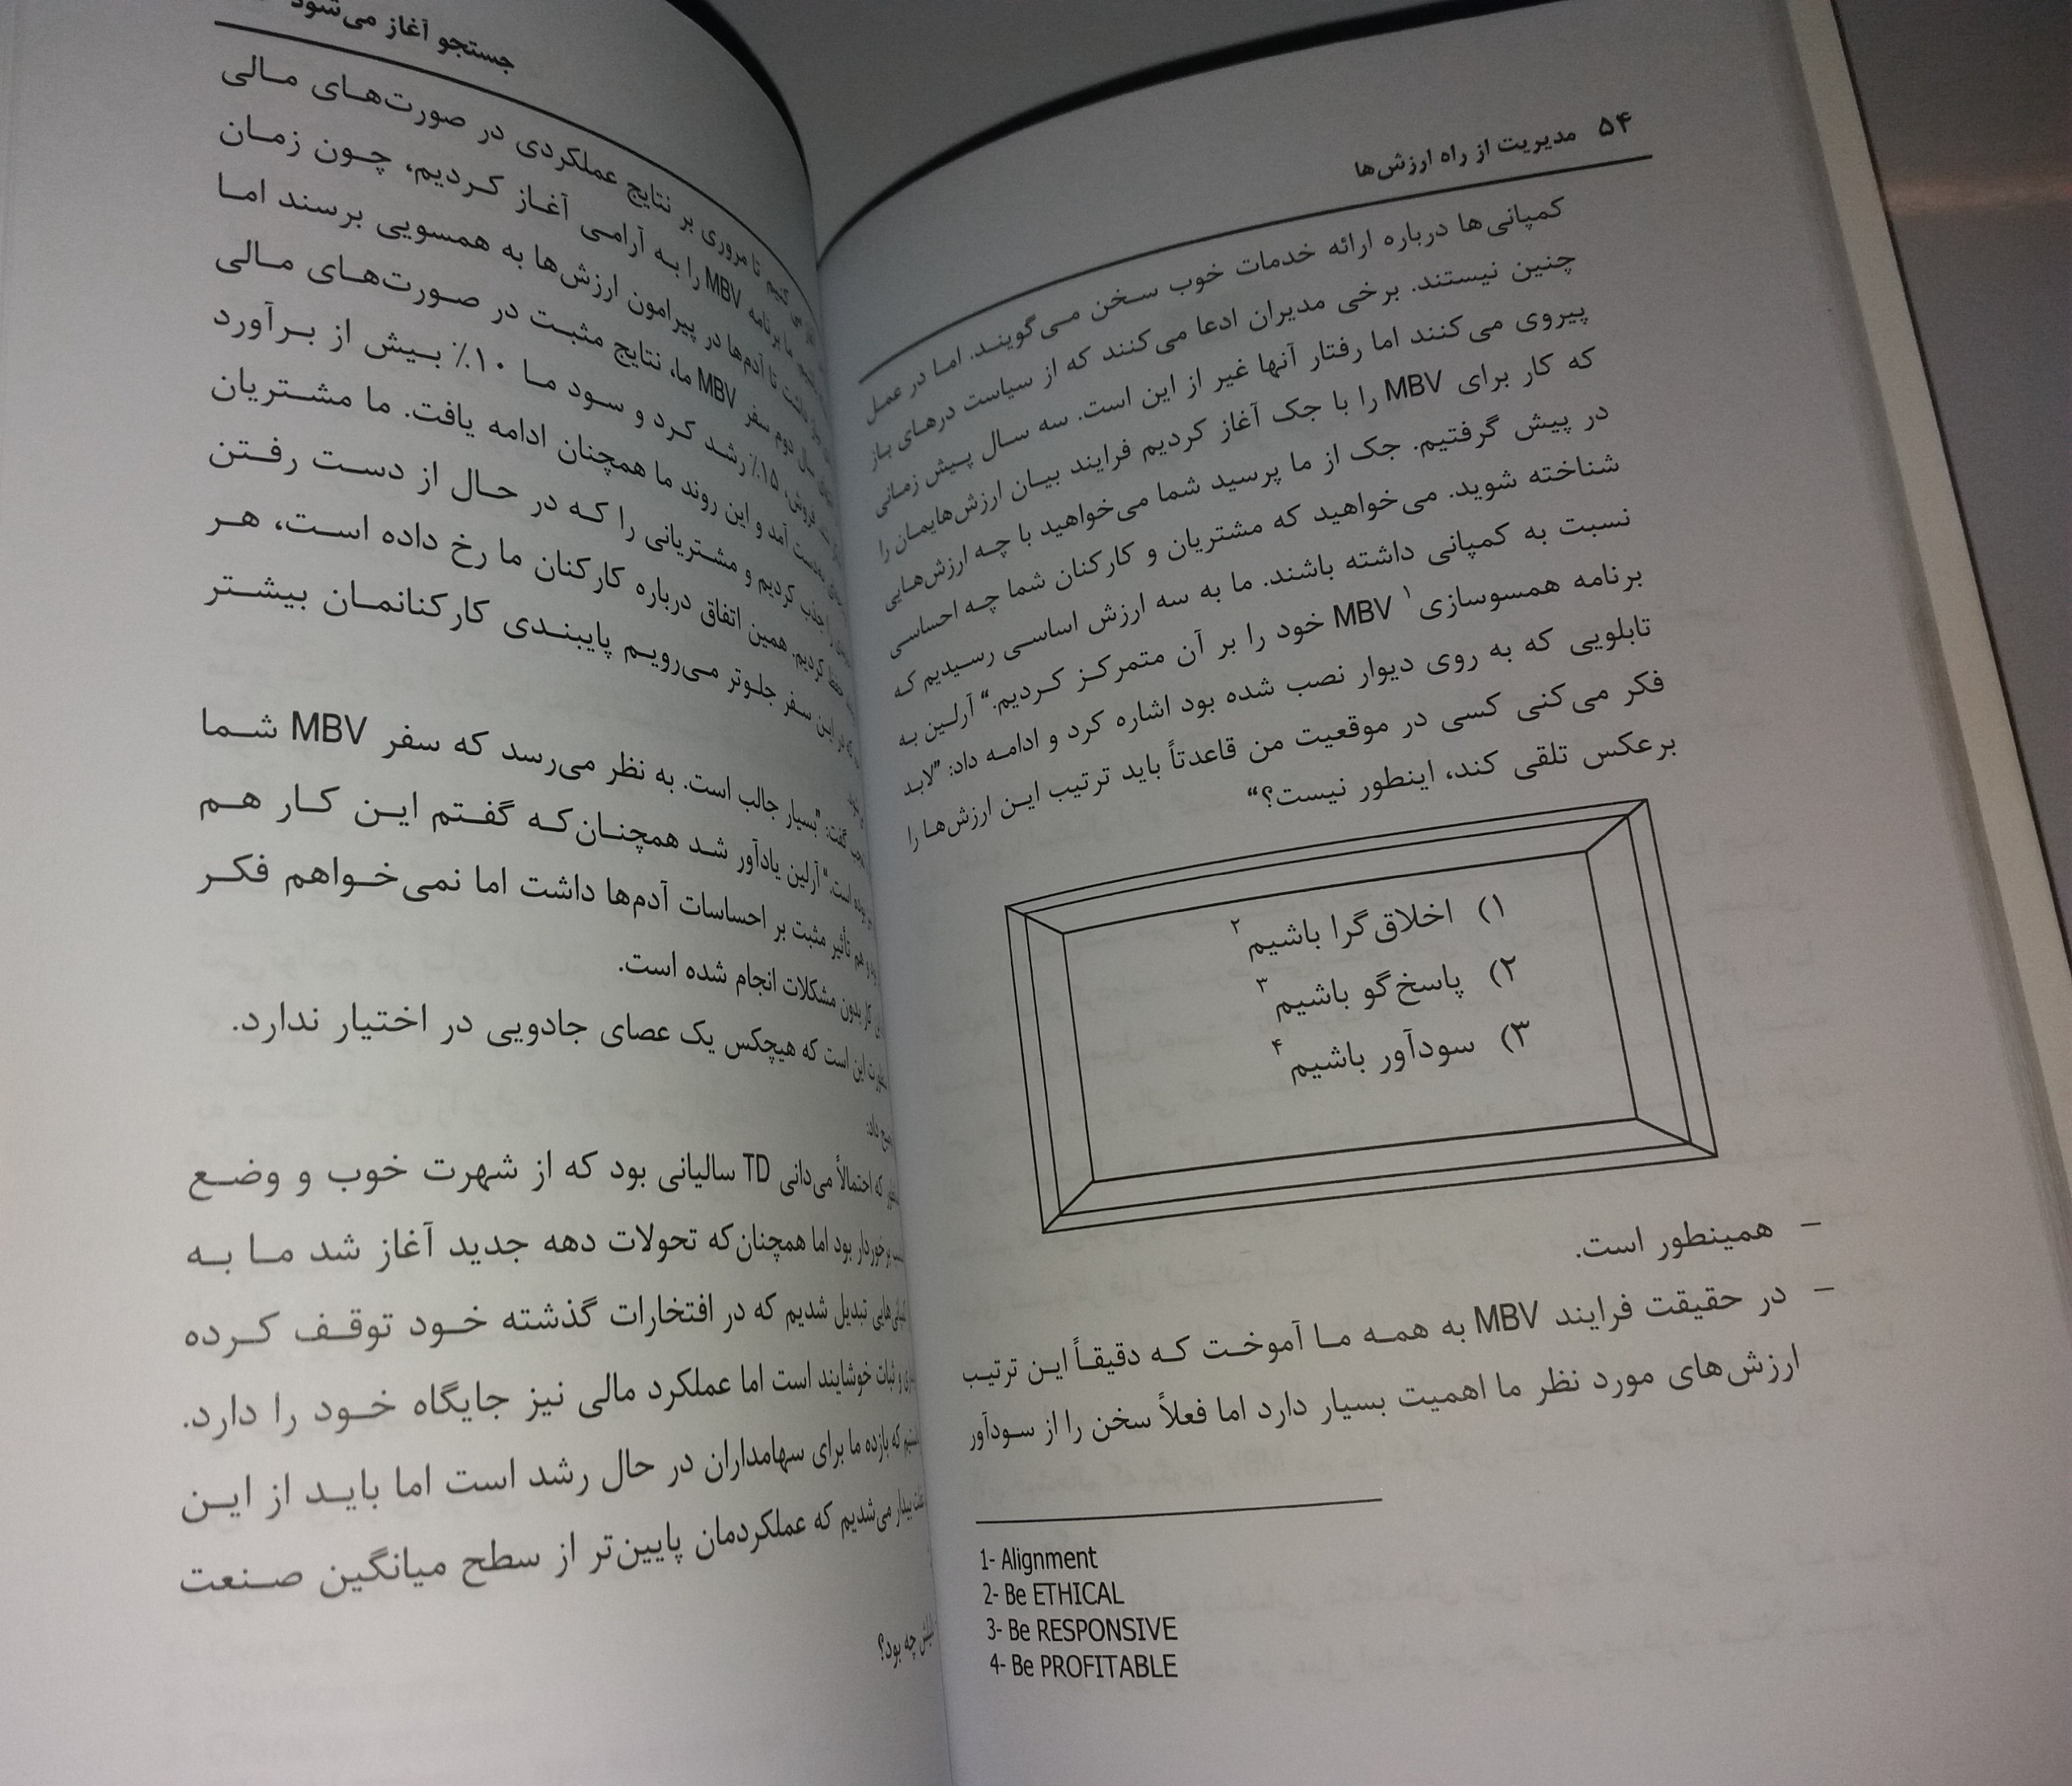 ۵۴ مدیریت از راه ارزش‌ها
کمپانی‌ها درباره ارائه خدمات خوب سخن می‌گویند. اما در عمل
چنین نیستند. برخی مدیران ادعا می‌کنند که از سیاست درهای باز
پیروی می‌کنند اما رفتار آنها غیر از این است. سه سال پیش زمانی
که کار برای MBV را با جک آغاز کردیم فرایند بیان ارزش‌هایمان را
در پیش گرفتیم. جک از ما پرسید شما می‌خواهید با چه ارزش‌هایی
شناخته شوید. می‌خواهید که مشتریان و کارکنان شما چه احساسی
نسبت به کمپانی داشته باشند. ما به سه ارزش اساسی رسیدیم که
برنامه همسوسازی۱ MBV خود را بر آن متمرکز کردیم.“ آرلین به
تابلویی که به روی دیوار نصب شده بود اشاره کرد و ادامه داد: ”لابد
فکر می‌کنی کسی در موقعیت من قاعدتاً باید ترتیب این ارزش‌ها را
برعکس تلقی کند، اینطور نیست؟“
۱) اخلاق‌گرا باشیم۲
۲) پاسخ‌گو باشیم۳
۳) سودآور باشیم۴
– همینطور است.
– در حقیقت فرایند MBV به همه ما آموخت که دقیقاً این ترتیب
ارزش‌های مورد نظر ما اهمیت بسیار دارد اما فعلاً سخن را از سودآور
1- Alignment
2- Be ETHICAL
3- Be RESPONSIVE
4- Be PROFITABLE
جستجو آغاز می‌شود
کنیم تا مروری بر نتایج عملکردی در صورت‌های مالی
ما برنامه MBV را به آرامی آغاز کردیم، چون زمان
داشت تا آدم‌ها در پیرامون ارزش‌ها به همسویی برسند اما
سال دوم سفر MBV ما، نتایج مثبت در صورت‌های مالی
فروش، ۱۵٪ رشد کرد و سود ما ۱۰٪ بیش از برآورد
بدست آمد و این روند ما همچنان ادامه یافت. ما مشتریان
جذب کردیم و مشتریانی را که در حال از دست رفتن
حفظ کردیم. همین اتفاق درباره کارکنان ما رخ داده است، هر
در این سفر جلوتر می‌رویم پایبندی کارکنانمان بیشتر
گفت: ”بسیار جالب است. به نظر می‌رسد که سفر MBV شما
بوده است.“ آرلین یادآور شد همچنان‌که گفتم این کار هم
هم تأثیر مثبت بر احساسات آدم‌ها داشت اما نمی‌خواهم فکر
کار بدون مشکلات انجام شده است.
این است که هیچکس یک عصای جادویی در اختیار ندارد.
داد:
که احتمالاً می‌دانی TD سالیانی بود که از شهرت خوب و وضع
برخوردار بود اما همچنان‌که تحولات دهه جدید آغاز شد ما به
تبدیل شدیم که در افتخارات گذشته خود توقف کرده
و ثبات خوشایند است اما عملکرد مالی نیز جایگاه خود را دارد.
که بازده ما برای سهامداران در حال رشد است اما باید از این
بیدار می‌شدیم که عملکردمان پایین‌تر از سطح میانگین صنعت
چه بود؟